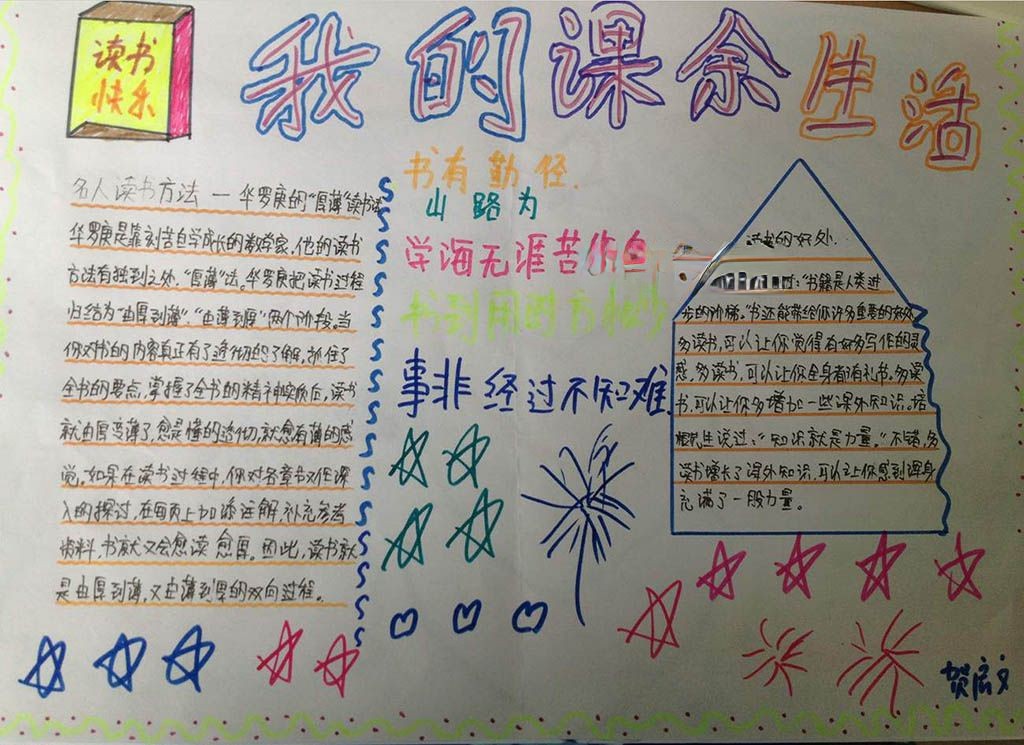 读书
快乐
我的课余生活
名人读书方法 — 华罗庚的“厚薄”读书法
华罗庚是靠刻苦自学成长的数学家,他的读书
方法有独到之处。“厚薄”法。华罗庚把读书过程
归结为“由厚到薄”、“由薄到厚”两个阶段。当
你对书的内容真正有了透彻的了解,抓住了
全书的要点,掌握了全书的精神实质后,读书
就由厚变薄了,愈是懂的透彻,就愈有薄的感
觉。如果在读书过程中,你对各章节又作深
入的探讨,在每页上加添注解,补充参考
资料,书就又会愈读愈厚。因此,读书就
是由厚到薄,又由薄到厚的双向过程。
书有勤径.
山路为
学海无涯苦作
书到用时方
事非经过不知难.
读书的好处.
:“书籍是人类进
步的阶梯。”书还能带给你许多重要的好处
多读书,可以让你觉得有好多写作的灵
感。多读书,可以让你全身都有礼书。多读
书,可以让你多增加一些课外知识。培
根先生说过:“知识就是力量。”不错,多
读书增长了课外知识,可以让你感到浑身
充满了一股力量。
贺启文